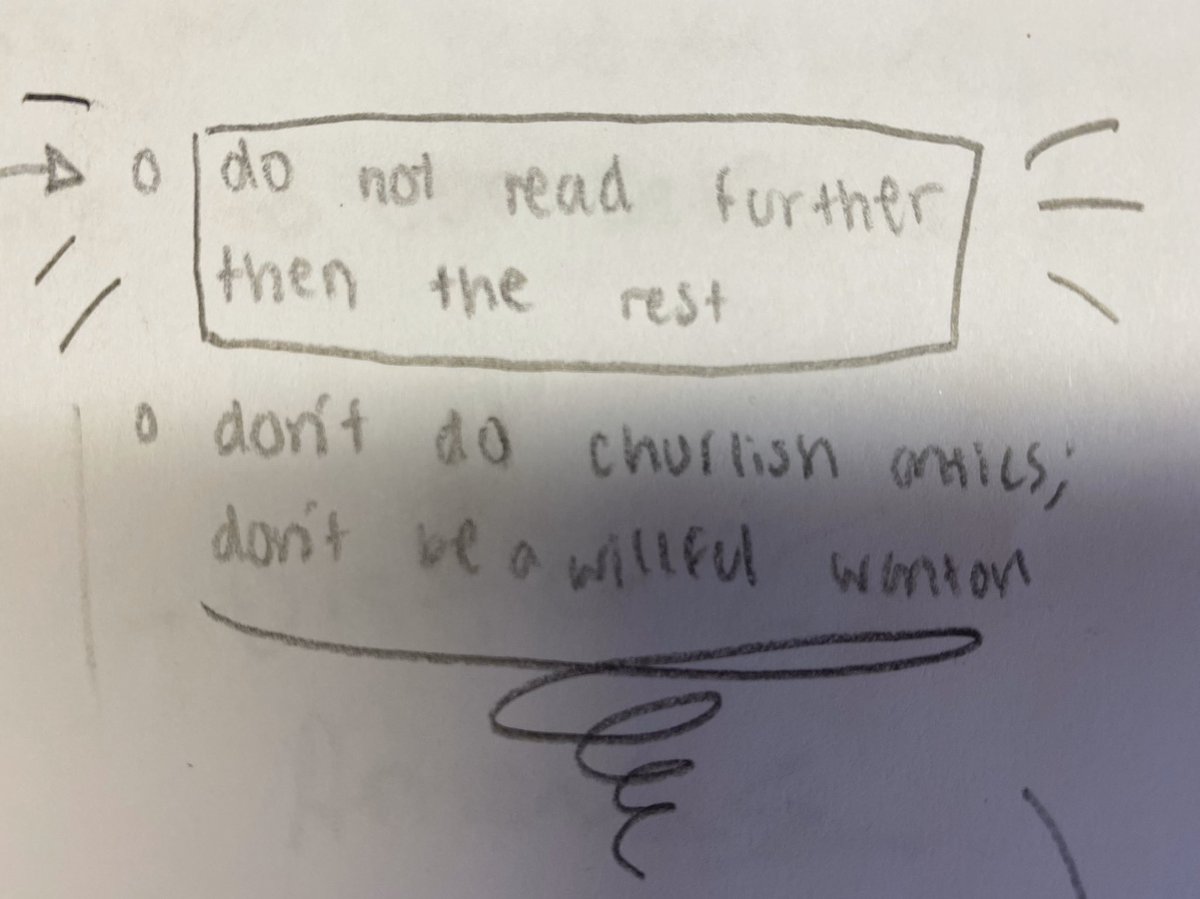 o do not read further
then the rest
o don't do churlish antics;
don't be a willful wanton